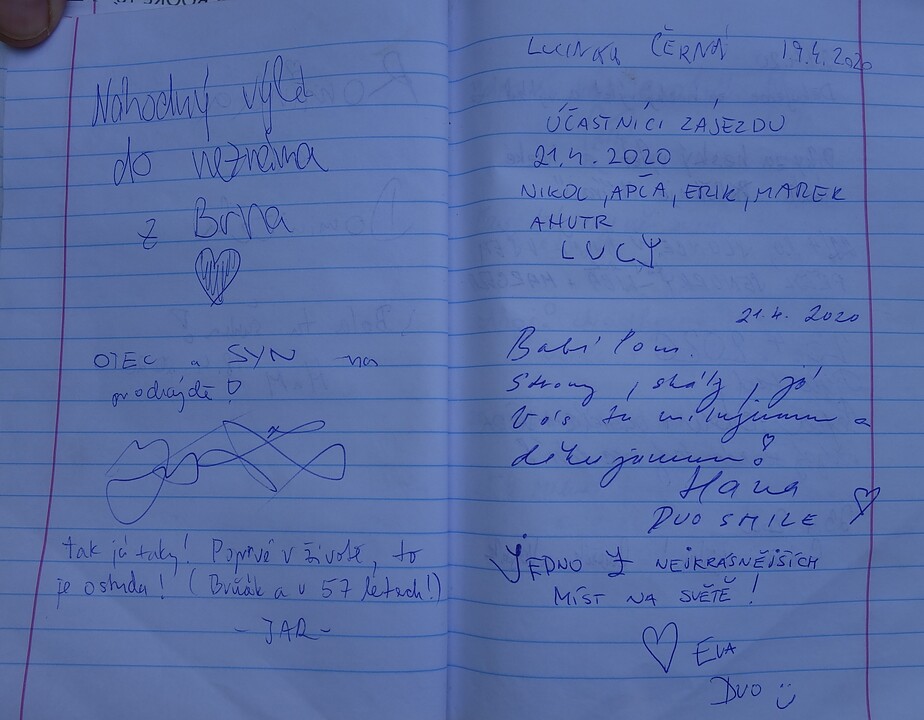 Náhodný výlet
do neznáma
z Brna
OTEC a SYN na
procházce!
tak já taky! Poprvé v životě, to
je ostuda! (Brňák a v 57 letech!)
- JAR -
LUCINKA ČERNÁ 19.4.2020
ÚČASTNÍCI ZÁJEZDU
21.4.2020
NIKOL, APČA, ERIK, MAREK
AHUTR
LUCY
21.4. 2020
Babí lom.
Stromy, skály, já
Vás tu milujuuuu a
děkujuuuu!
Hana
DUO SMILE
JEDNO Z NEJKRÁSNĚJŠÍCH
MÍST NA SVĚTĚ!
EVA
DUO